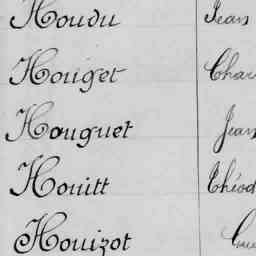 Houdu Jean
Houget Char
Houguet Jean
Houitt Théod
Houizot